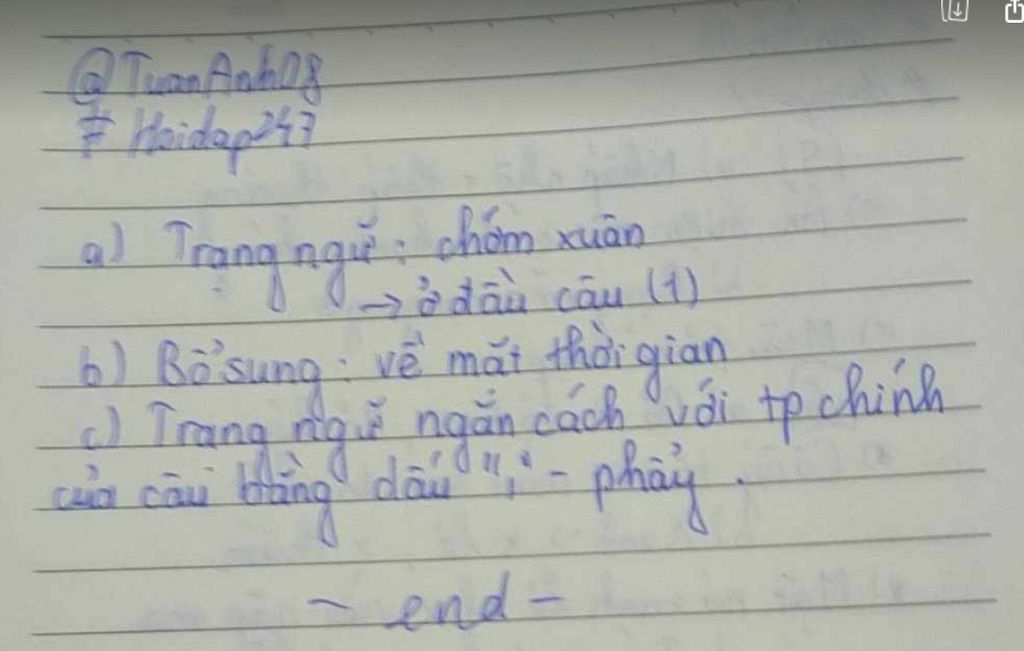 @TuanAnh08
# Hoidap247
a) Trạng ngữ : chớm xuân
→ ở đầu câu (1)
b) Bổ sung : về mặt thời gian
c) Trạng ngữ ngăn cách với tp chính
của câu bằng dấu "," - phẩy .
- end -